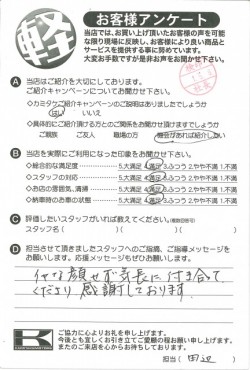 軽
お客様アンケート
当店では、お買い上げ頂いたお客様の声を可能
な限り現場に反映し、お客様により良い商品と
サービスを提供する事に努めています。
大変お手数ですが是非お声をお聞かせ下さい。
A 当店はご紹介を大切にしております。
ご紹介キャンペーンについてお聞かせ下さい。
◇カミタケご紹介キャンペーンの説明はありましたでしょうか
はい いいえ
◇具体的にご紹介頂ける方とのご関係をお聞かせ頂けますでしょうか
ご親族 ご友人 職場の方 機会があれば紹介したい
B 当店を実際にご利用になった印象をお聞かせ下さい。
◇総合的な満足度 5.大満足 4.満足 3.ふつう 2.やや不満 1.不満
◇スタッフの対応 5.大満足 4.満足 3.ふつう 2.やや不満 1.不満
◇お店の雰囲気、清掃 5.大満足 4.満足 3.ふつう 2.やや不満 1.不満
◇納車時のお車の状態 5.大満足 4.満足 3.ふつう 2.やや不満 1.不満
C 評価したいスタッフがいれば教えてください。(複数回答可)
スタッフ名( )( )
D 担当させて頂きましたスタッフへのご指摘、ご指導メッセージを
お願いします。応援メッセージもぜひお願いします。
イヤな顔せず気長に付き合って
くださり感謝しております。
ご協力に心よりお礼を申し上げます。
今後とも宜しくお引き立てご愛顧の程お願い申し上げます。
またのご来店を心からお待ちしております。
担当( 田辺 )